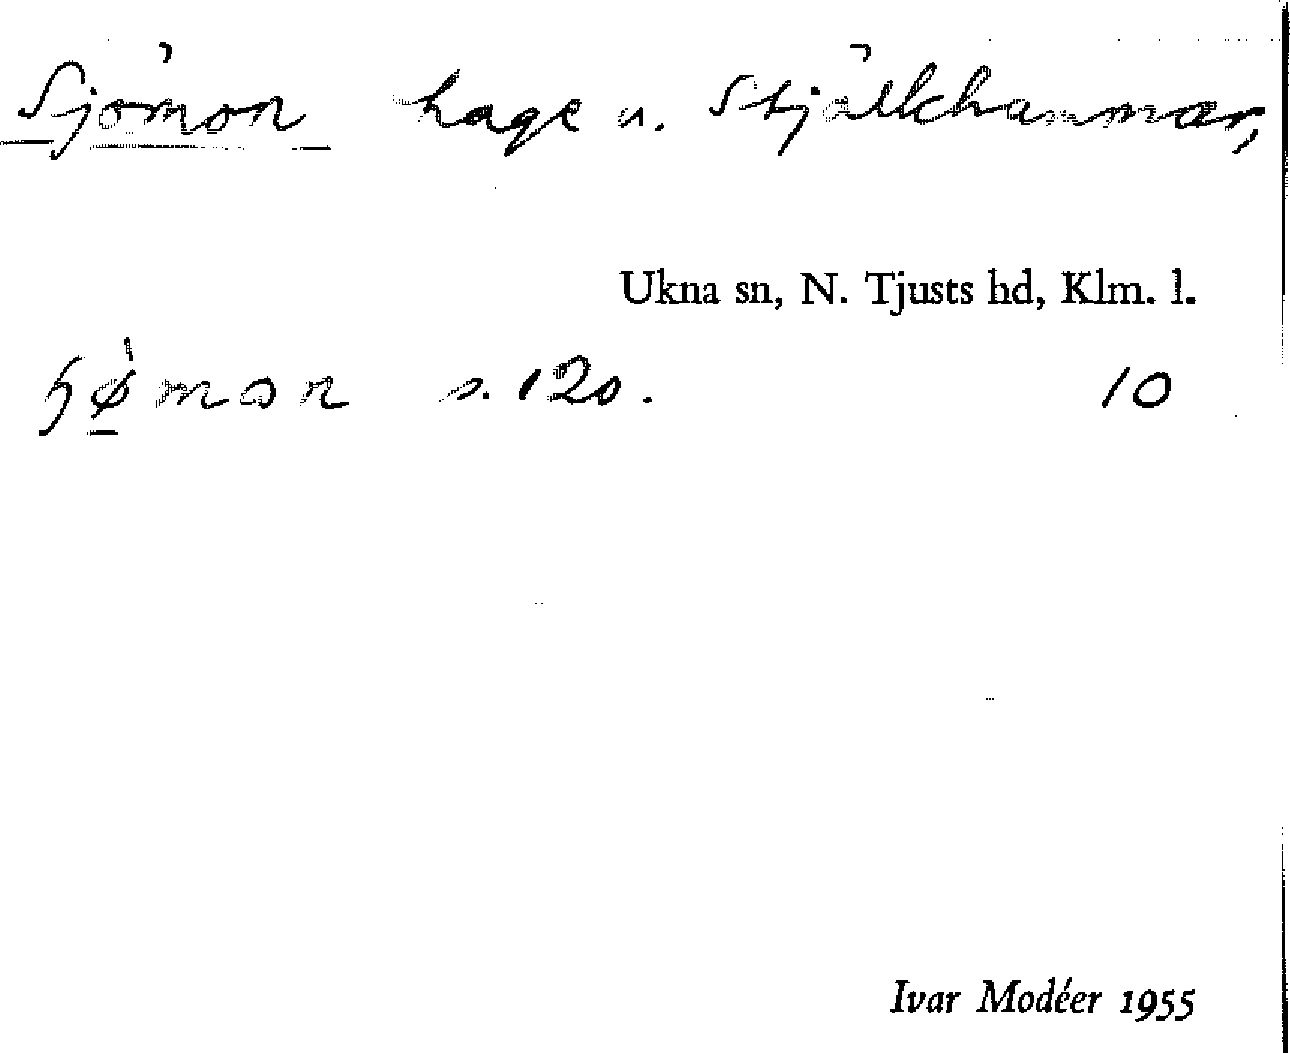 Sjömon hage u. Stjälkhammar,
Ukna sn, N. Tjusts hd, Klm. l.
s. 120. 10
Ivar Modéer 1955